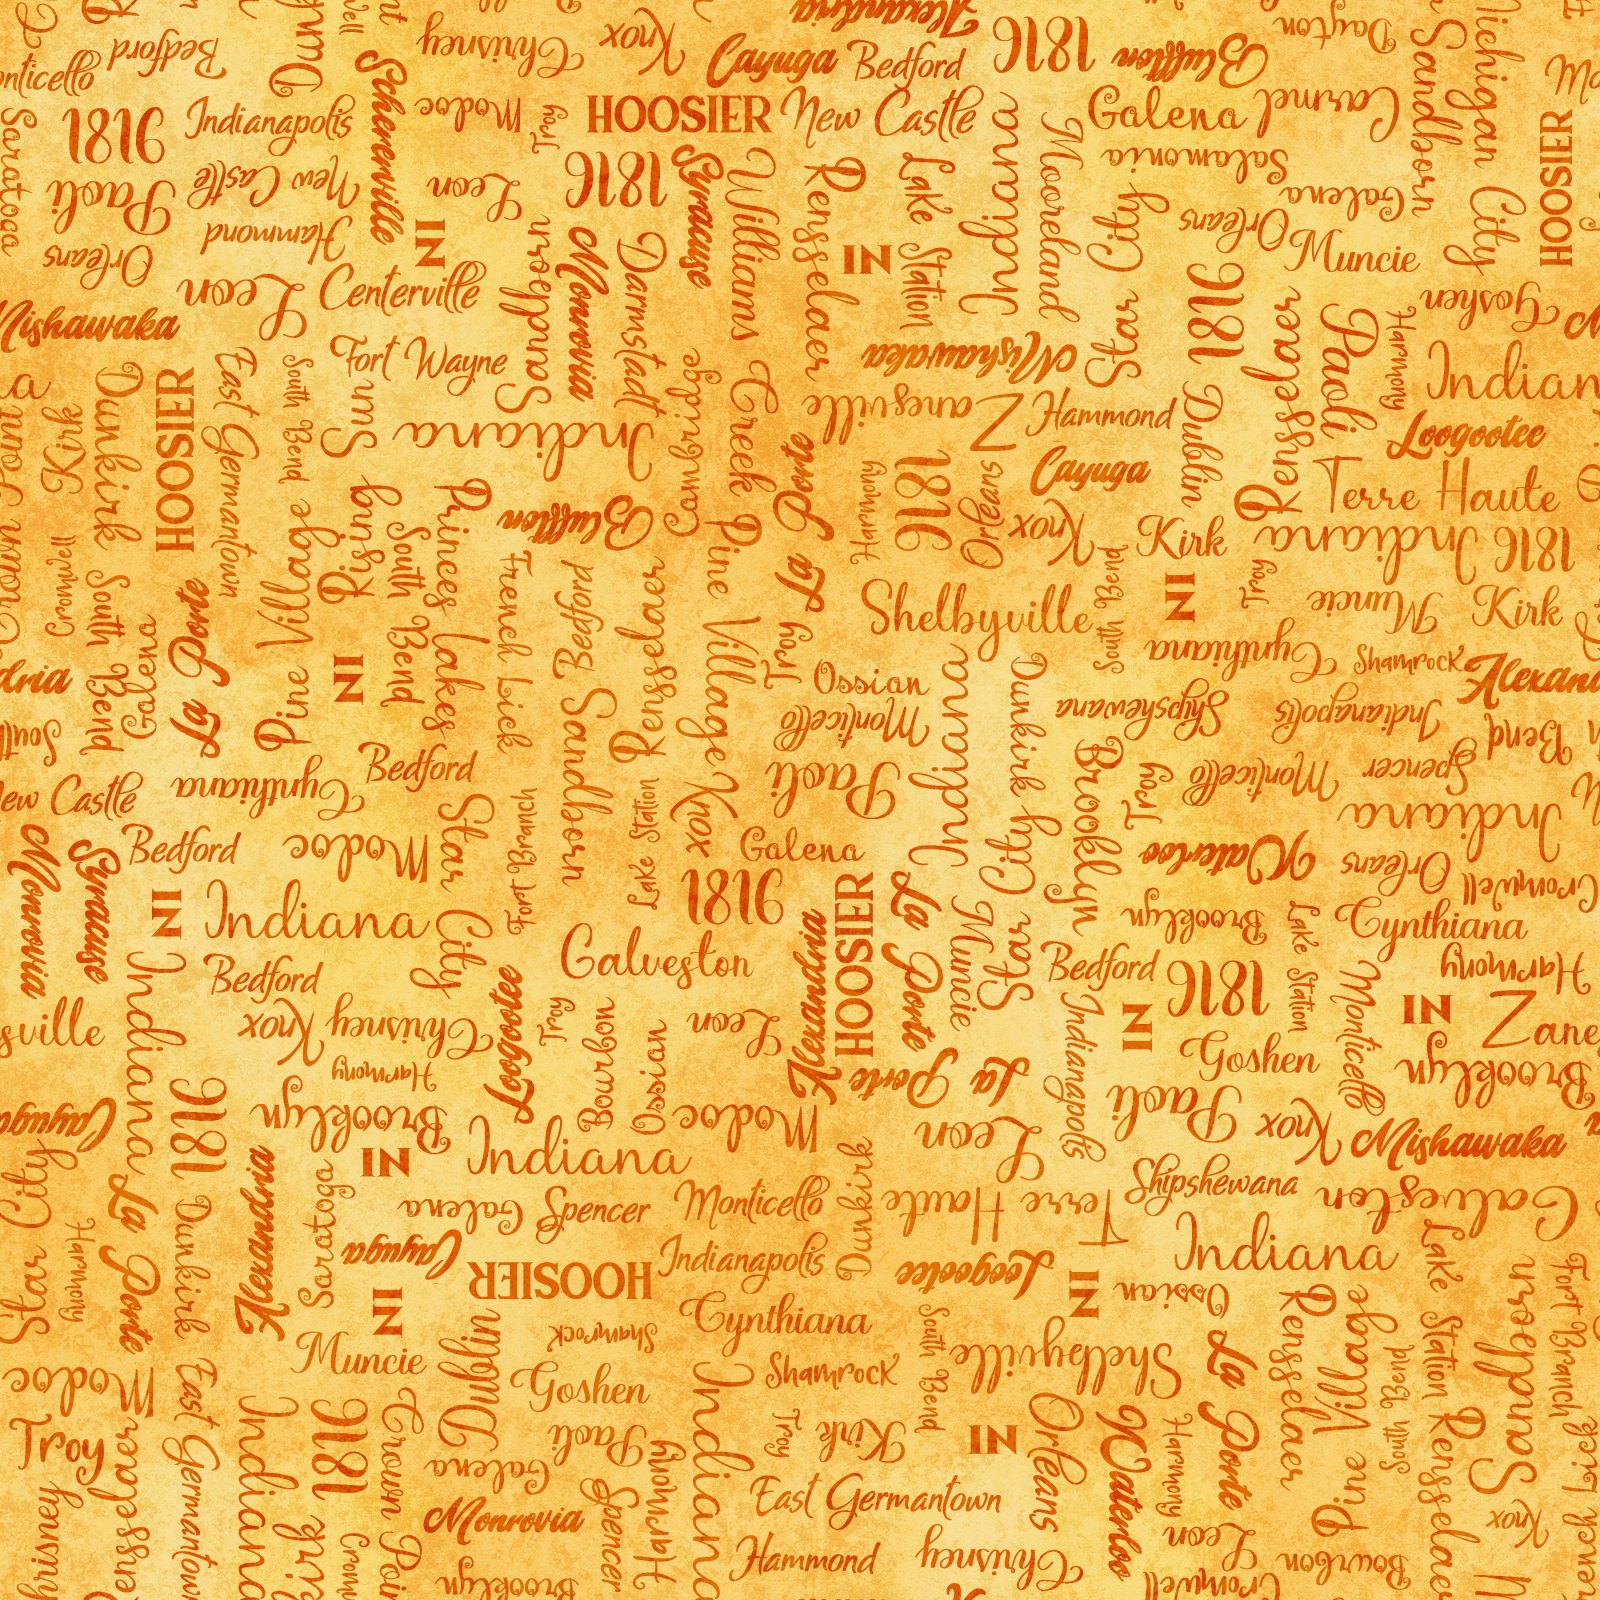 Alexandria
Dayton
Bedford
Chrisney
Knox
Cayuga
Bedford
1816
Bluffton
Michigan City
Sandborn
Monticello
Dunkirk
Schererville
Modoc
Troy
HOOSIER
New Castle
Galena
Carmel
HOOSIER
Saratoga
1816
Indianapolis
Salamonia
Paoli
New Castle
Leon
1816
Syracuse
Williams Creek
Rensselaer
Lake Station
Indiana
Mooreland
Star City
Galena
Orleans
Hammond
IN
Sandborn
Monrovia
Darmstadt
IN
Orleans
Muncie
Leon
Centerville
1816
Rensselaer
Goshen
Mishawaka
Fort Wayne
Mishawaka
Paoli
Harmony
Indiana
Dunkirk
HOOSIER
East Germantown
South Bend
Indiana
Cambridge
Zanesville
Hammond
Dublin
Loogootee
Kirk
Rising Sun
Princes Lakes
Bluffton
La Porte
Harmony
1816
Orleans
Cayuga
Knox
Kirk
Terre Haute
Indiana
1816
Crown Point
Cromwell
South Bend
Galena
La Porte
Pine Village
South Bend
French Lick
Bedford
Rensselaer
Pine Village
Troy
Shelbyville
South Bend
IN
Troy
Muncie
Kirk
Cynthiana
Shamrock
Alexandria
IN
Sandborn
Ossian
Monticello
Indiana
Dunkirk
Shipshewana
Indianapolis
South Bend
New Castle
Cynthiana
Bedford
Lake Station
Knox
Paoli
Brooklyn
Troy
Monticello
Spencer
Indiana
Monrovia
Syracuse
Bedford
Modoc
Star City
Fort Branch
Galena
Star City
Waterloo
Orleans
Cromwell
IN
Indiana
1816
HOOSIER
La Porte
Muncie
Brooklyn
Lake Station
Cynthiana
Indiana
Bedford
Galveston
Alexandria
Bedford
1816
Monticello
Harmony
Knox
Chrisney
Loogootee
Troy
Bourbon
Ossian
Leon
Indianapolis
IN
IN
Zanesville
Harmony
La Porte
Goshen
Brooklyn
Cayuga
1816
Brooklyn
Modoc
Leon
Paoli
Knox
Mishawaka
Star City
La Porte
Dunkirk
Alexandria
Saratoga
IN
Indiana
Dunkirk
Shipshewana
Galveston
Harmony
Galena
Spencer
Monticello
Terre Haute
Cayuga
HOOSIER
Indianapolis
Loogootee
Indiana
Lake Station
Fort Branch
IN
Shamrock
Cynthiana
South Bend
IN
Ossian
Rensselaer
Pine Village
Sandborn
Muncie
Dublin
Goshen
Shamrock
Shelbyville
La Porte
South Bend
Modoc
East Germantown
Indiana
1816
Crown Point
Paoli
Indiana
Troy
Kirk
IN
Orleans
Waterloo
Harmony
La Porte
Rensselaer
Troy
Galena
Harmony
East Germantown
Chrisney
Rensselaer
Monrovia
Spencer
Leon
Knox
French Lick
Kirk
Cromwell
Brooklyn
Hammond
Chrisney
Cromwell
Bourbon